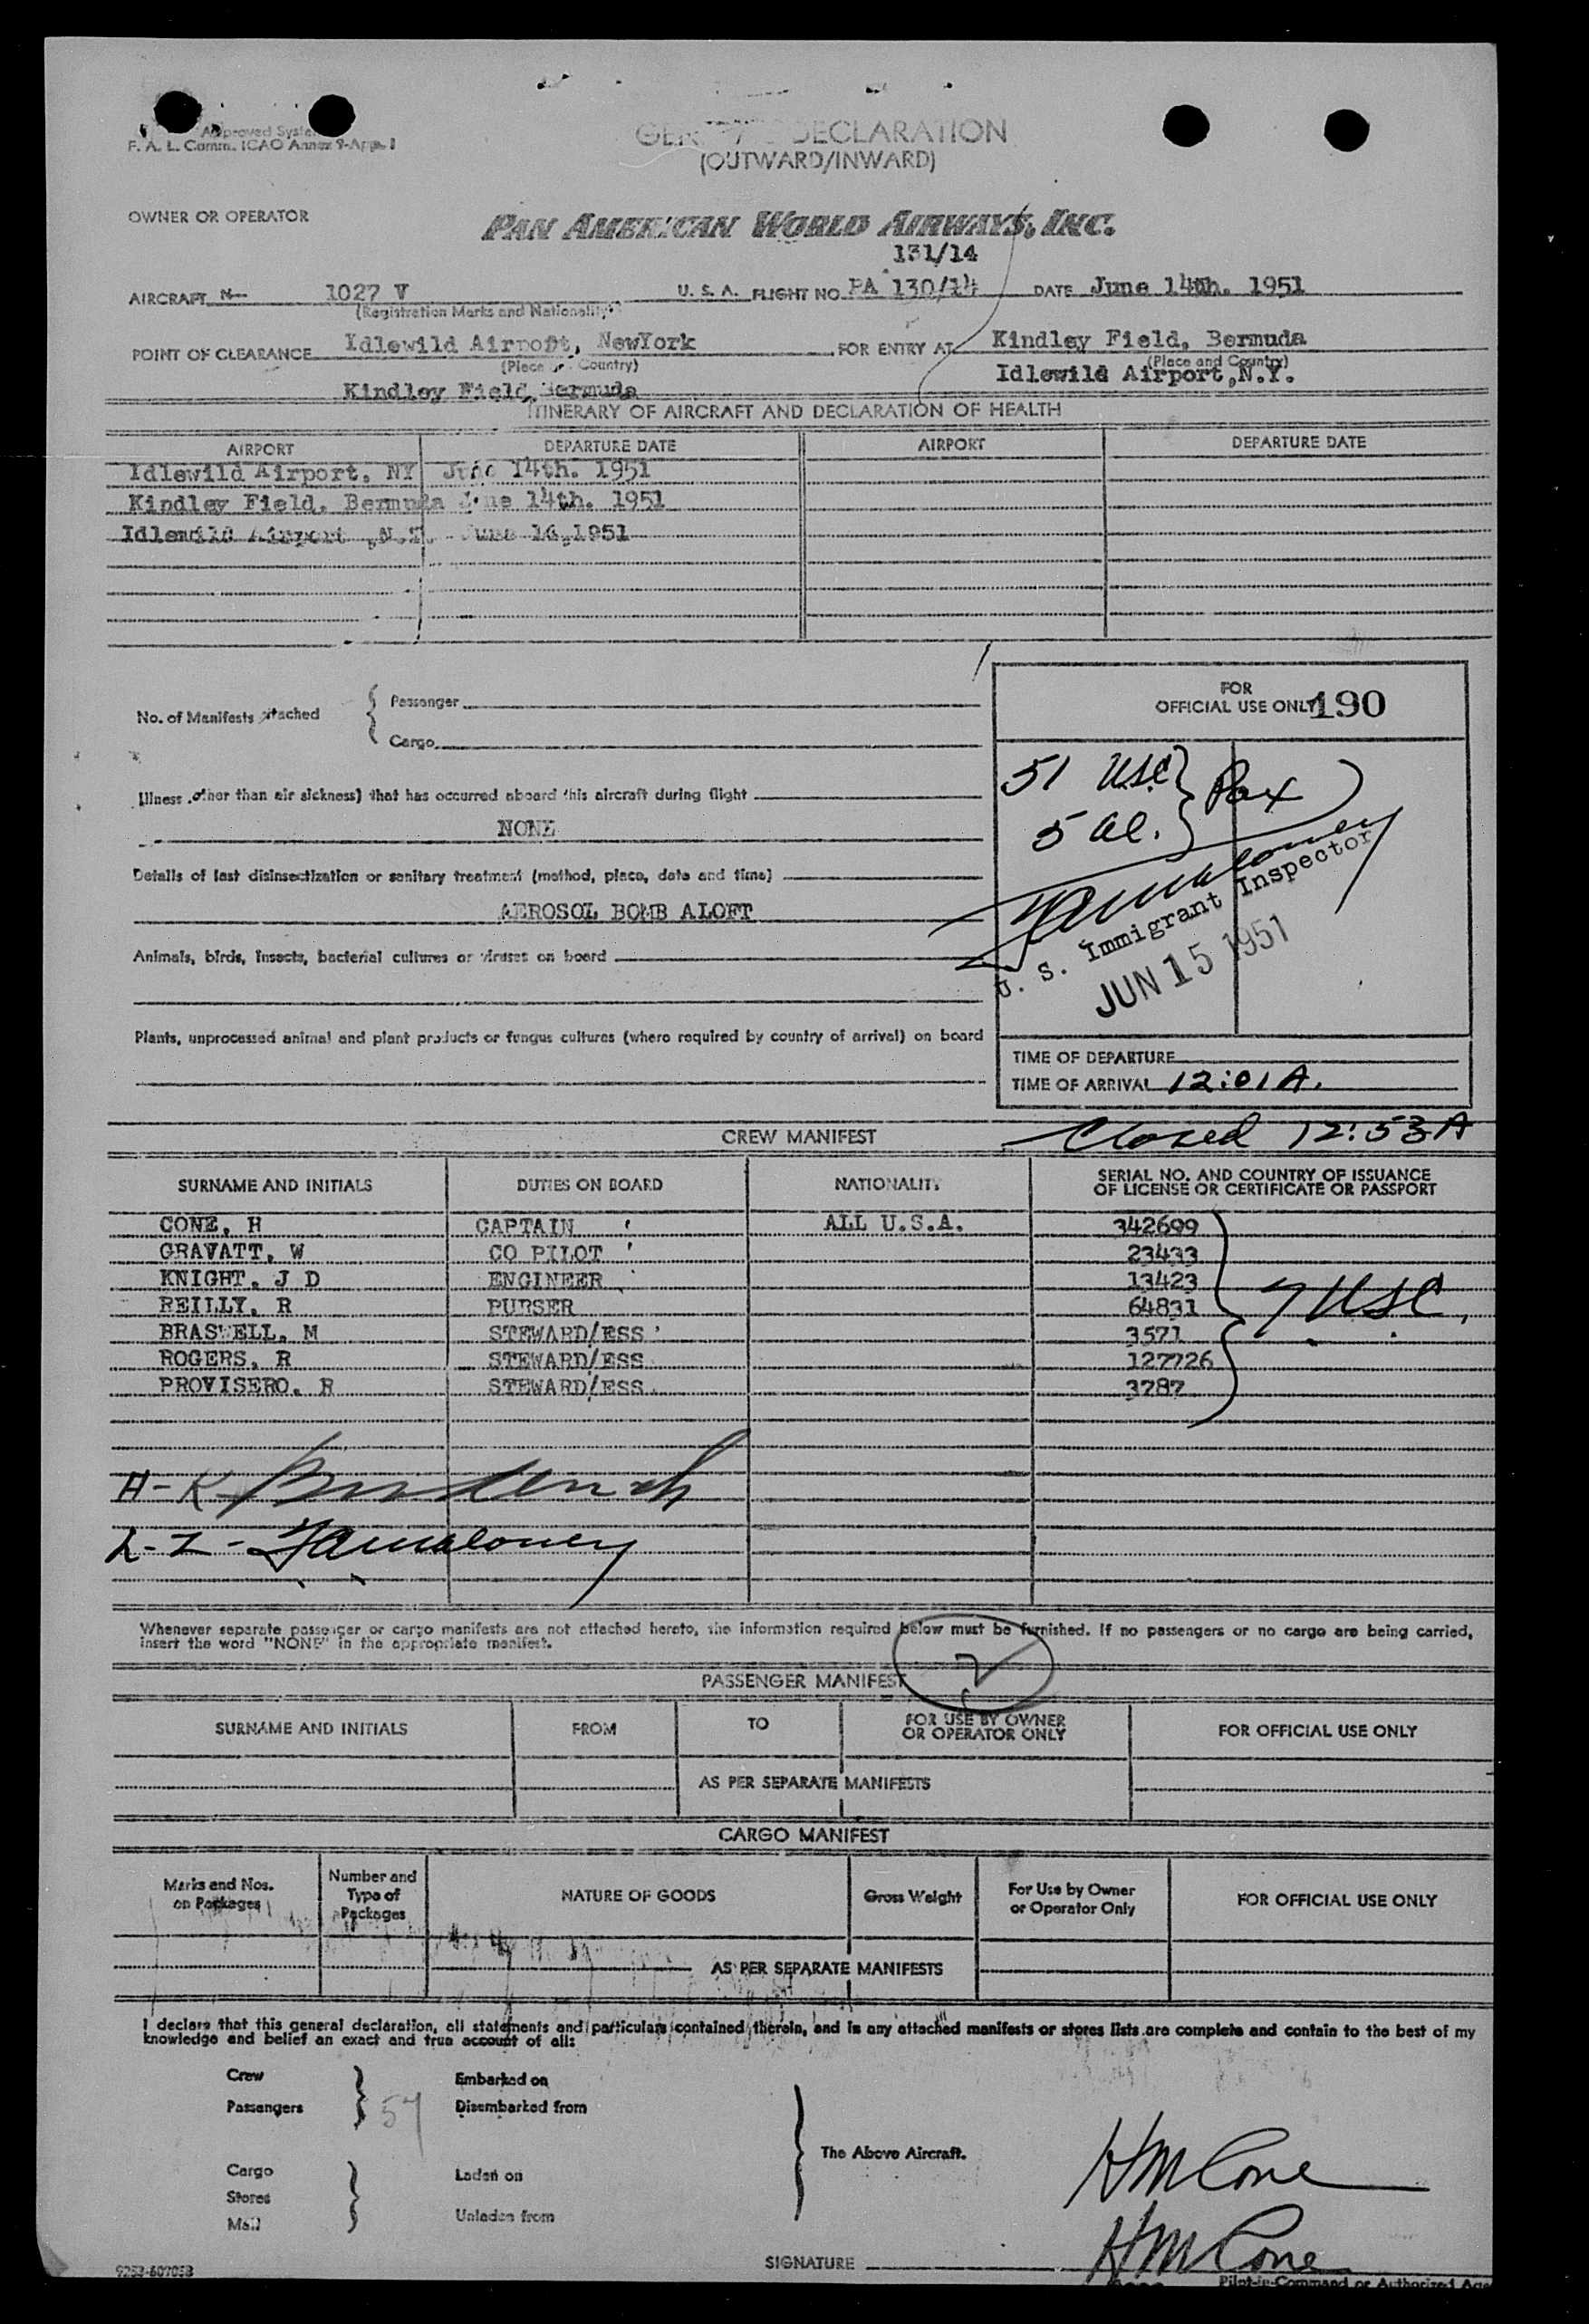 Approved System
F. A. L. Comm. ICAO Annex 9-App. 1
DECLARATION
(OUTWARD/INWARD)
OWNER OR OPERATOR
PAN AMERICAN WORLD AIRWAYS, INC.
131/14
AIRCRAFT N 1027 V U. S. A. FLIGHT NO. PA 130/14 DATE June 14th. 1951
(Registration Marks and Nationality)
POINT OF CLEARANCE Idlewild Airport, NewYork FOR ENTRY AT Kindley Field, Bermuda
(Place Country) (Place and Country)
Kindley Field, Bermuda Idlewild Airport, N.Y.
ITINERARY OF AIRCRAFT AND DECLARATION OF HEALTH
AIRPORT DEPARTURE DATE AIRPORT DEPARTURE DATE
Idlewild Airport, NY June 14th. 1951
Kindley Field, Bermuda June 14th. 1951
Idlewild Airport ,N.Y. June 14,1951
No. of Manifests attached
Passenger
Cargo
FOR
OFFICIAL USE ONLY 190
51 USC
5 al.
Pax
Illness other than air sickness) that has occurred aboard this aircraft during flight
NONE
Details of last disinsectization or sanitary treatment (method, place, date and time)
AEROSOL BOMB ALOFT
U. S. Immigrant Inspector
JUN 15 1951
Animals, birds, insects, bacterial cultures or viruses on board
Plants, unprocessed animal and plant products or fungus cultures (where required by country of arrival) on board
TIME OF DEPARTURE
TIME OF ARRIVAL 12:01 A.
CREW MANIFEST Closed 12:53 A
SURNAME AND INITIALS DUTIES ON BOARD NATIONALITY SERIAL NO. AND COUNTRY OF ISSUANCE
OF LICENSE OR CERTIFICATE OR PASSPORT
CONE, H CAPTAIN ALL U.S.A. 342699
GRAVATT, W CO PILOT 23433
KNIGHT, J D ENGINEER 13423
REILLY, R PURSER 64831
7 USC.
BRASWELL, M STEWARD/ESS 3571
ROGERS, R STEWARD/ESS 127726
PROVISERO, R STEWARD/ESS 3787
H-K
L-Z - Jamaloney
Whenever separate passenger or cargo manifests are not attached hereto, the information required below must be furnished. If no passengers or no cargo are being carried,
insert the word "NONE" in the appropriate manifest.
2
PASSENGER MANIFEST
SURNAME AND INITIALS FROM TO FOR USE BY OWNER
OR OPERATOR ONLY FOR OFFICIAL USE ONLY
AS PER SEPARATE MANIFESTS
CARGO MANIFEST
Marks and Nos.
on Packages
Number and
Type of
Packages
NATURE OF GOODS
Gross Weight
For Use by Owner
or Operator Only
FOR OFFICIAL USE ONLY
AS PER SEPARATE MANIFESTS
I declare that this general declaration, all statements and particulars contained therein, and in any attached manifests or stores lists are complete and contain to the best of my
knowledge and belief an exact and true account of all:
Crew Embarked on
Passengers 57 Disembarked from
The Above Aircraft.
Cargo Laden on
Stores
Mail Unladen from
HM Cone
SIGNATURE HM Cone
Pilot-in-Command or Authorized